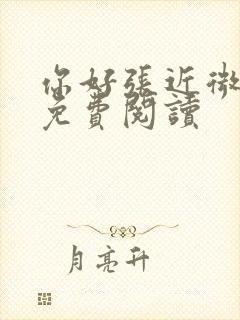 你好張近微
免費閱讀
月亮升